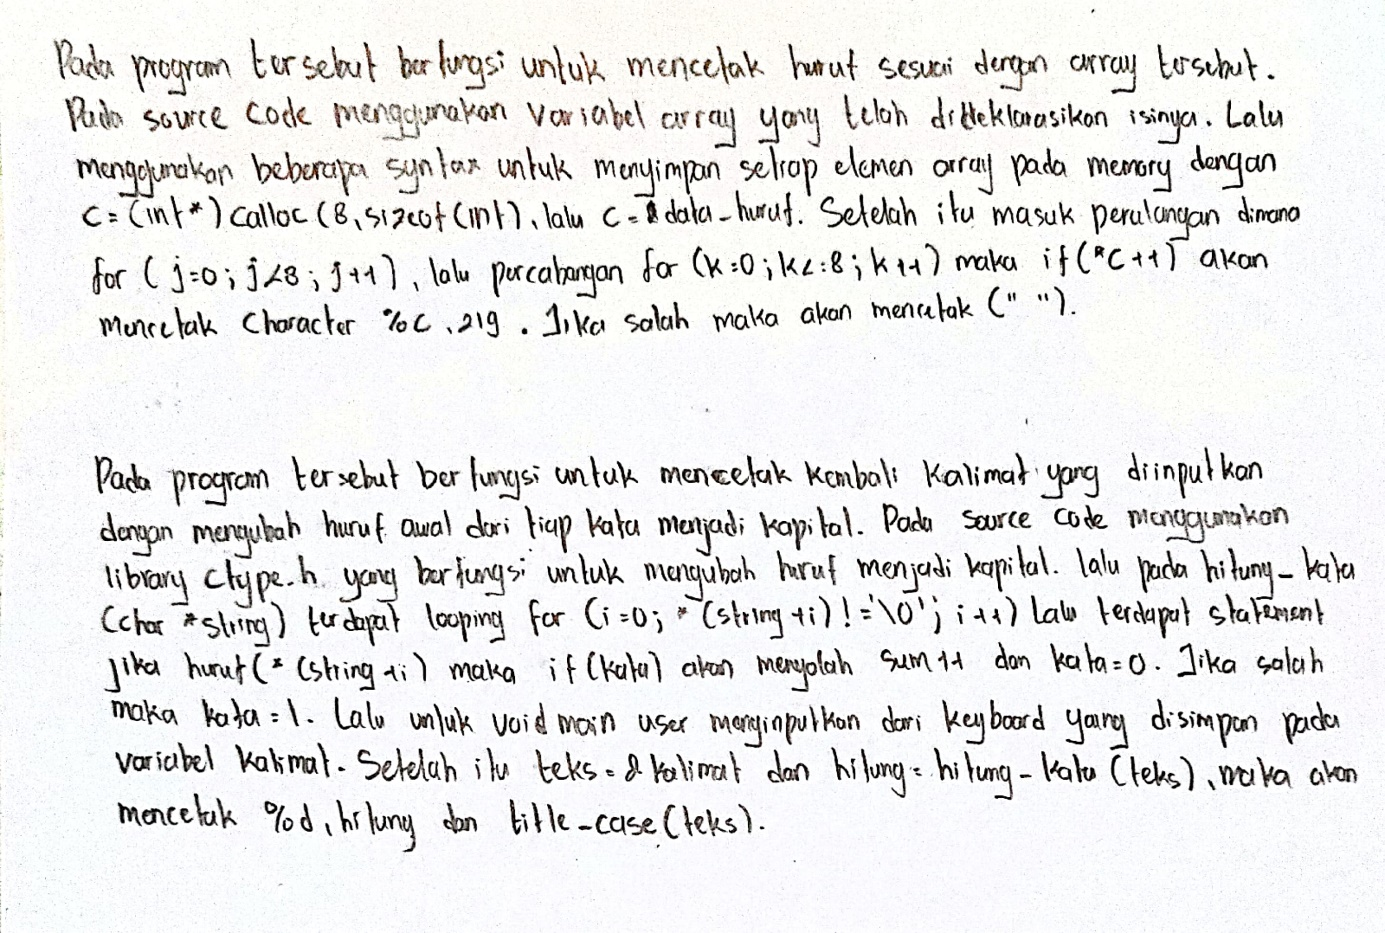 Pada program tersebut berfungsi untuk mencetak huruf sesuai dengan array tersebut.
Pada source code menggunakan variabel array yang telah dideklarasikan isinya. Lalu
menggunakan beberapa syntax untuk menyimpan setiap elemen array pada memory dengan
c = (int*) calloc (8, sizeof (int), lalu c = & data_huruf. Setelah itu masuk perulangan dimana
for ( j=0; j<8; j++), lalu percabangan for (k=0; k<=8; k++) maka if (*c++) akan
mencetak character %c, 219. Jika salah maka akan mencetak (" ").
Pada program tersebut berfungsi untuk mencetak kembali kalimat yang diinputkan
dengan mengubah huruf awal dari tiap kata menjadi kapital. Pada source code menggunakan
library ctype.h yang berfungsi untuk mengubah huruf menjadi kapital. lalu pada hitung_kata
(char *string) terdapat looping for (i=0; *(string+i) != '\0'; i++) lalu terdapat statement
jika huruf (*(string+i) maka if (kata) akan mengolah sum++ dan kata=0. Jika salah
maka kata=1. Lalu untuk void main user menginputkan dari keyboard yang disimpan pada
variabel kalimat. Setelah itu teks = & kalimat dan hitung = hitung_kata (teks), maka akan
mencetak %d, hitung dan title_case (teks).